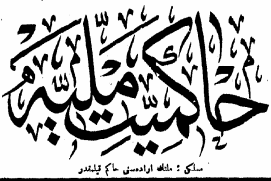 حاكميت ملّيه
مسلكی : ملتك اراده‌سنی حاكم قیلمقدر